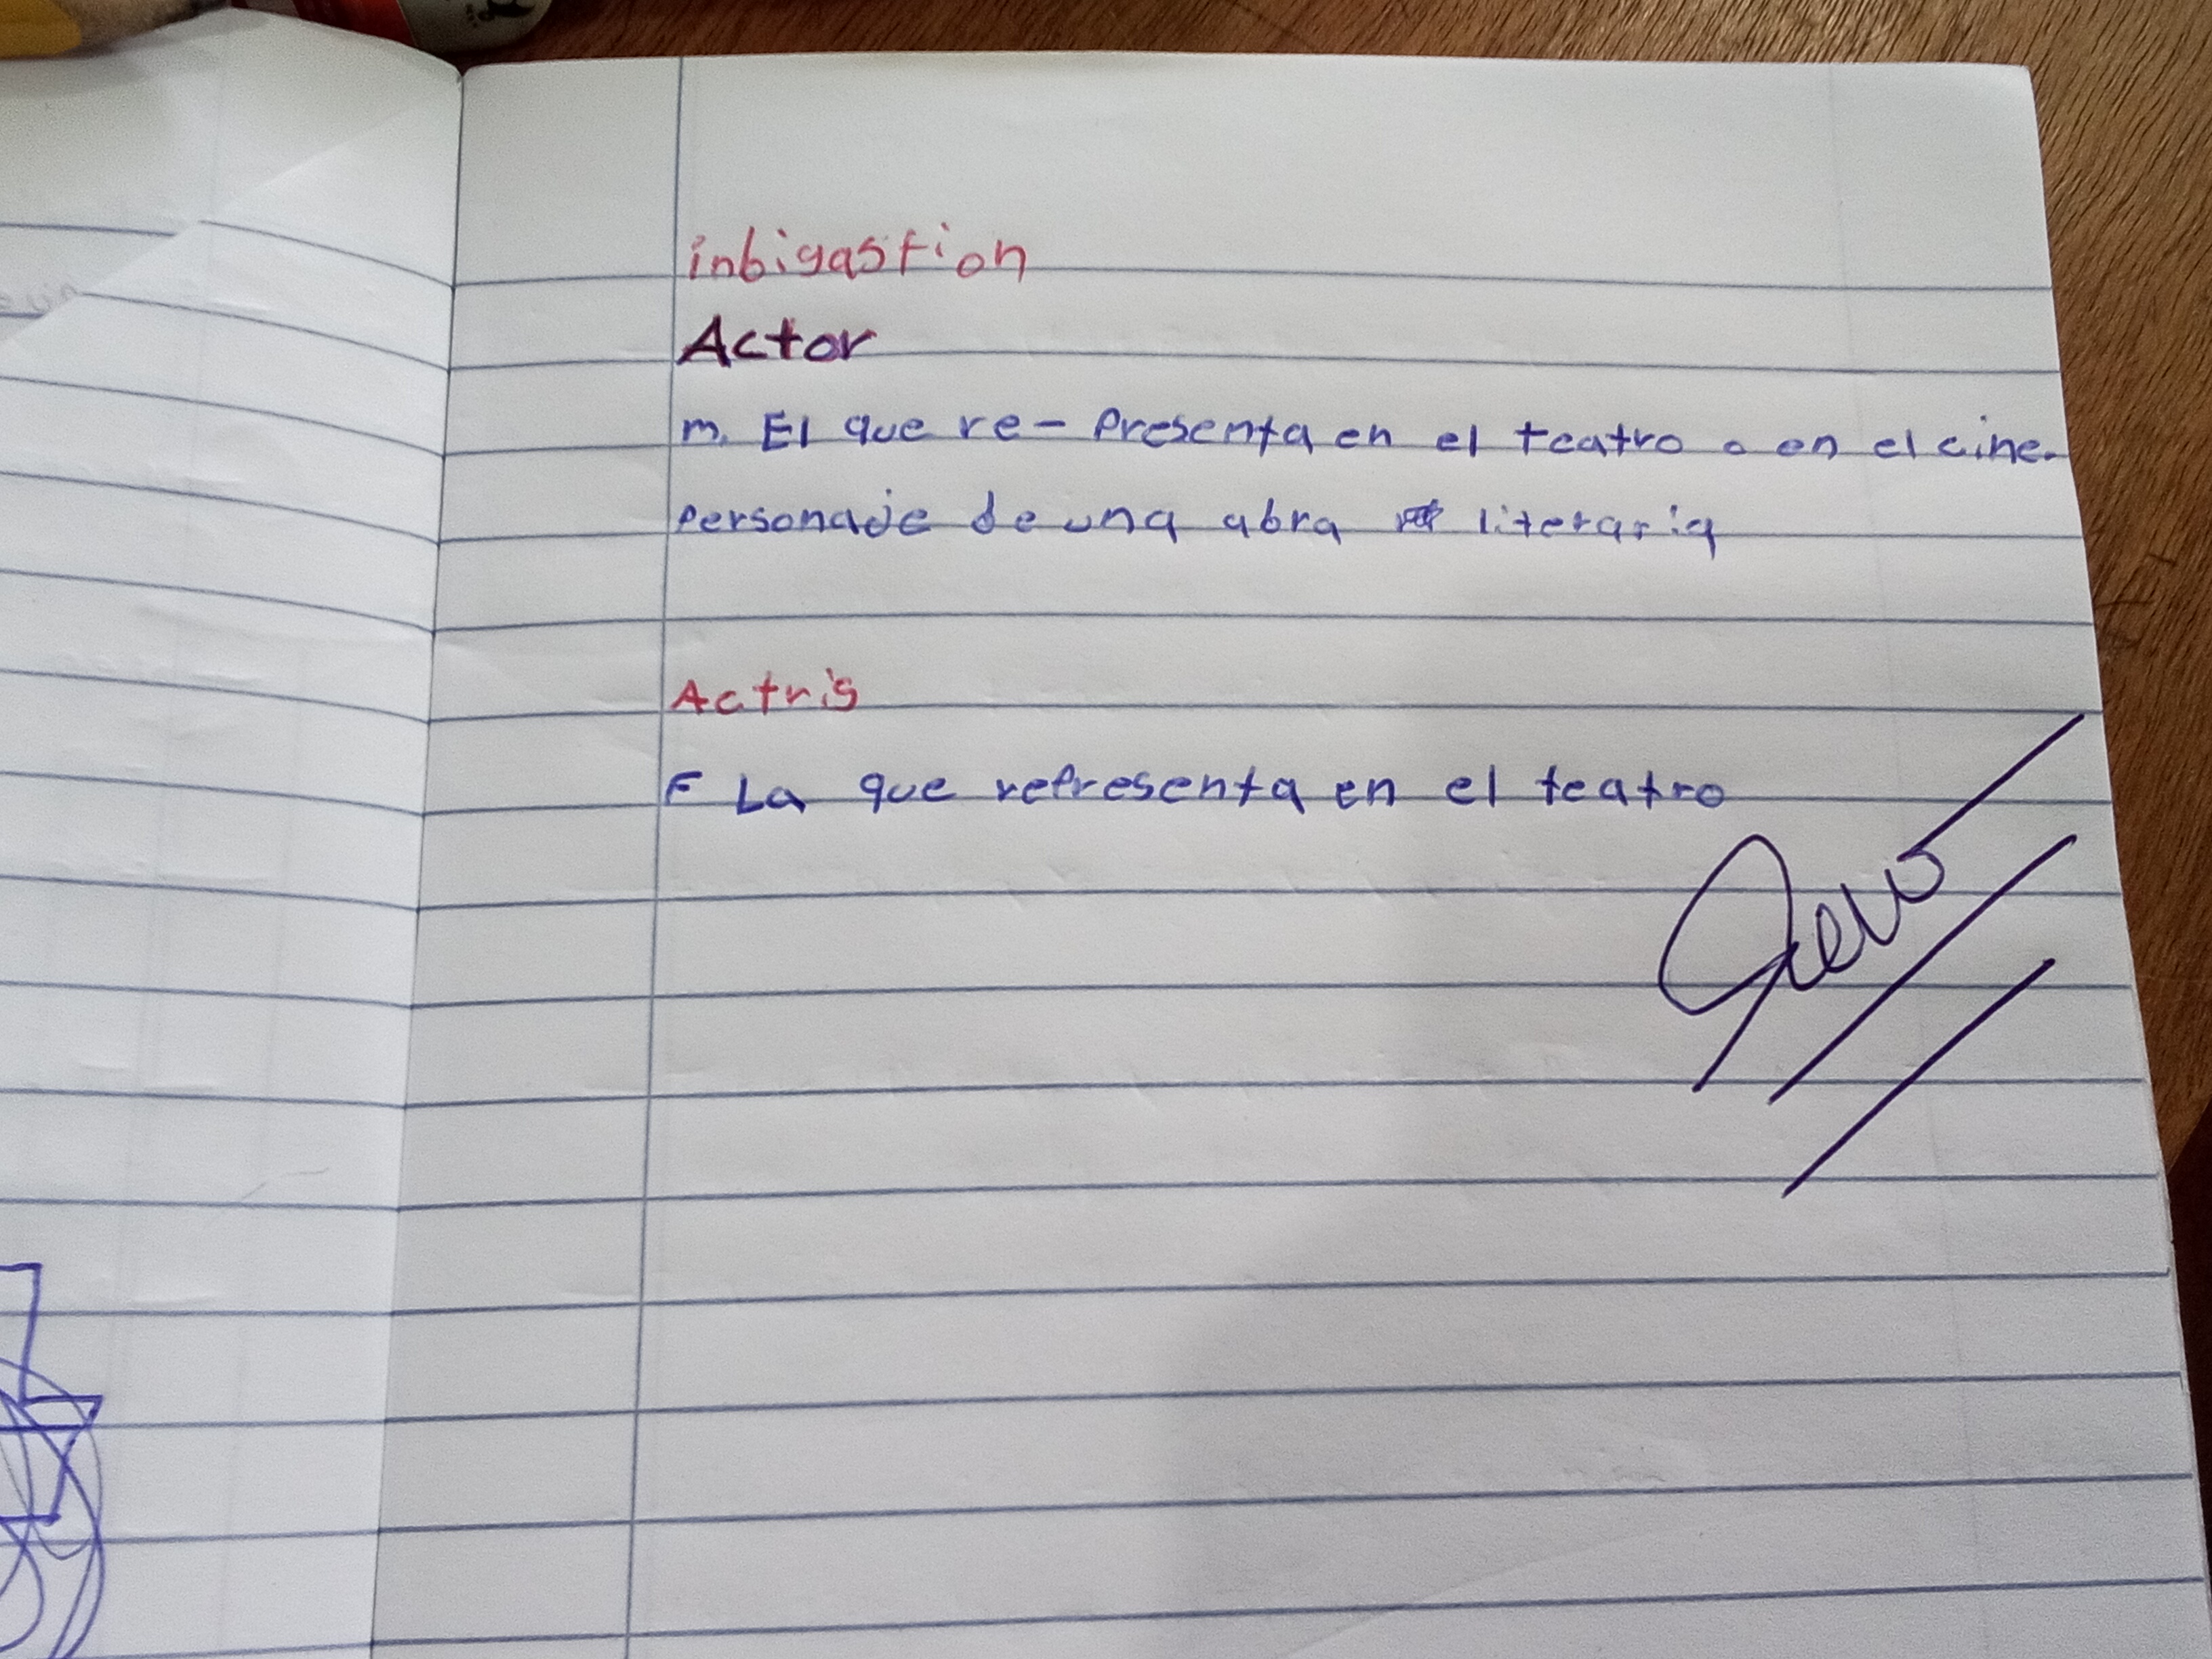 inbigastion
Actor
m. El que re- Presenta en el teatro o en el cine.
Personaje de una abra literaria
Actris
F La que representa en el teatro